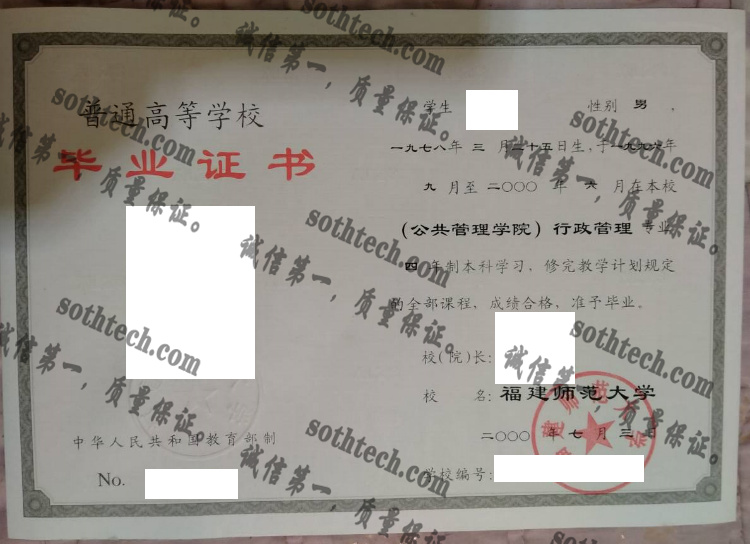 普通高等学校
毕业证书
中华人民共和国教育部制
No.
学生 性别 男 ,
一九七八年 三 月二十五日生,于一九九六年
九 月至 二〇〇〇 年 六 月在本校
(公共管理学院)行政管理 专业
四 年制本科学习,修完教学计划规定
的全部课程,成绩合格,准予毕业。
校(院)长:
校 名: 福建师范大学
二〇〇〇 年 七 月 三
学校编号:
sothtech.com
诚信第一,质量保证。
sothtech.com
诚信第一,质量保证。
sothtech.com
诚信第一,质量保证。
sothtech.com
诚信第一,质量保证。
sothtech.com
诚信第一,质量保证。
sothtech.com
诚信第一,质量保证。
sothtech.com
诚信第一,质量保证。